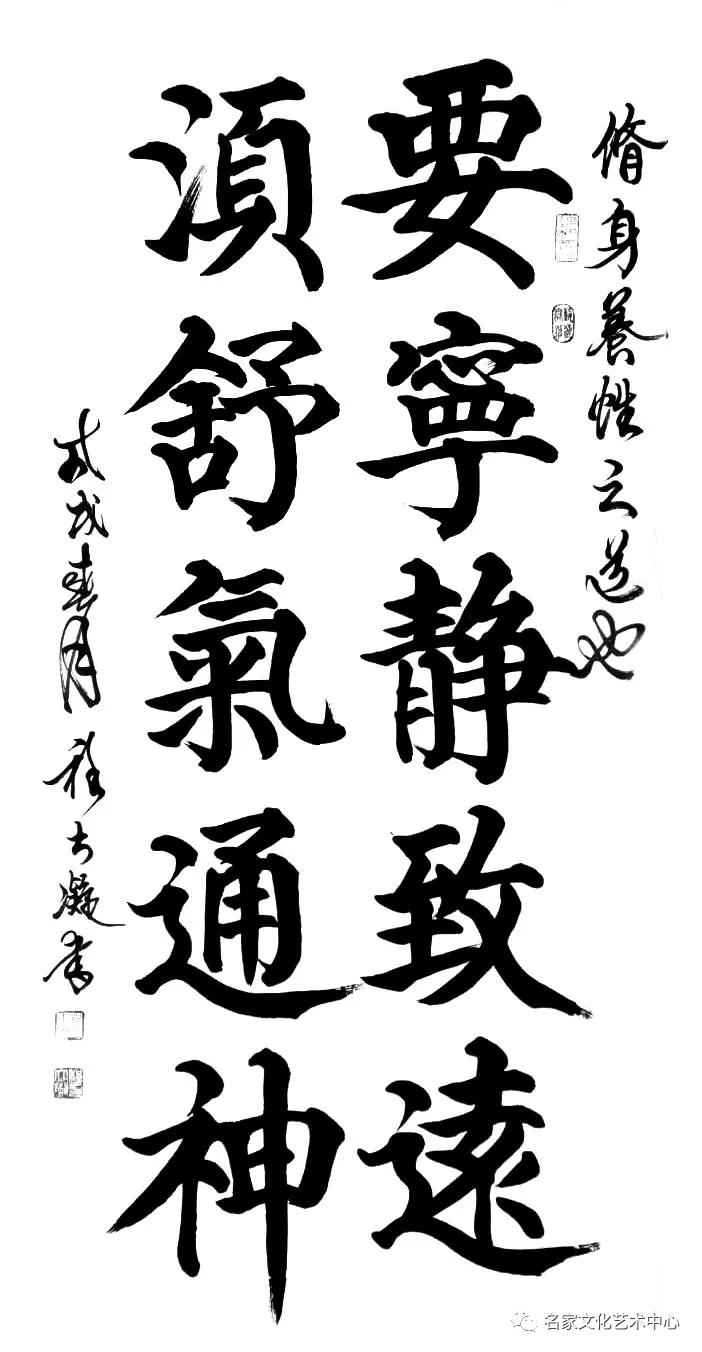 脩身養性之道也
要寧静致遠
須舒氣通神
戊戌春月程士凝書
名家文化艺术中心